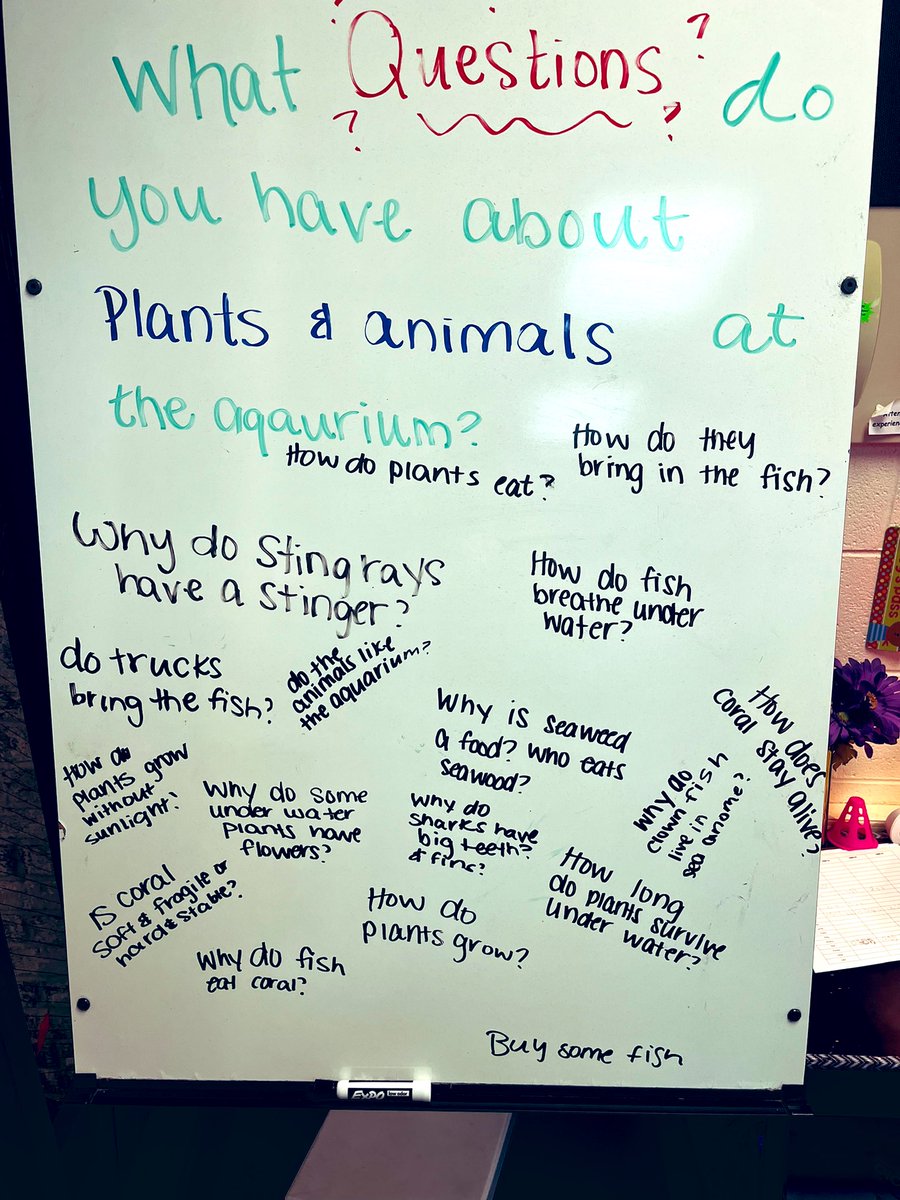 What Questions do
? ? ? ?
you have about
Plants & animals at
the aqaurium?
How do plants eat?
How do they
bring in the fish?
Why do Stingrays
have a stinger?
How do fish
breathe under
water?
do trucks
bring the fish?
do the
animals like
the aquarium?
Why is seaweed
a food? who eats
seawood?
How does
coral stay alive?
How do
plants grow
without
sunlight?
Why do some
under water
plants have
flowers?
why do
sharks have
big teeth?
& fins?
why do
clown fish
live in
sea anome?
is coral
soft & fragile or
hard & stable?
How do
plants grow?
How long
do plants survive
under water?
Why do fish
eat coral?
Buy some fish
EXPO low odor